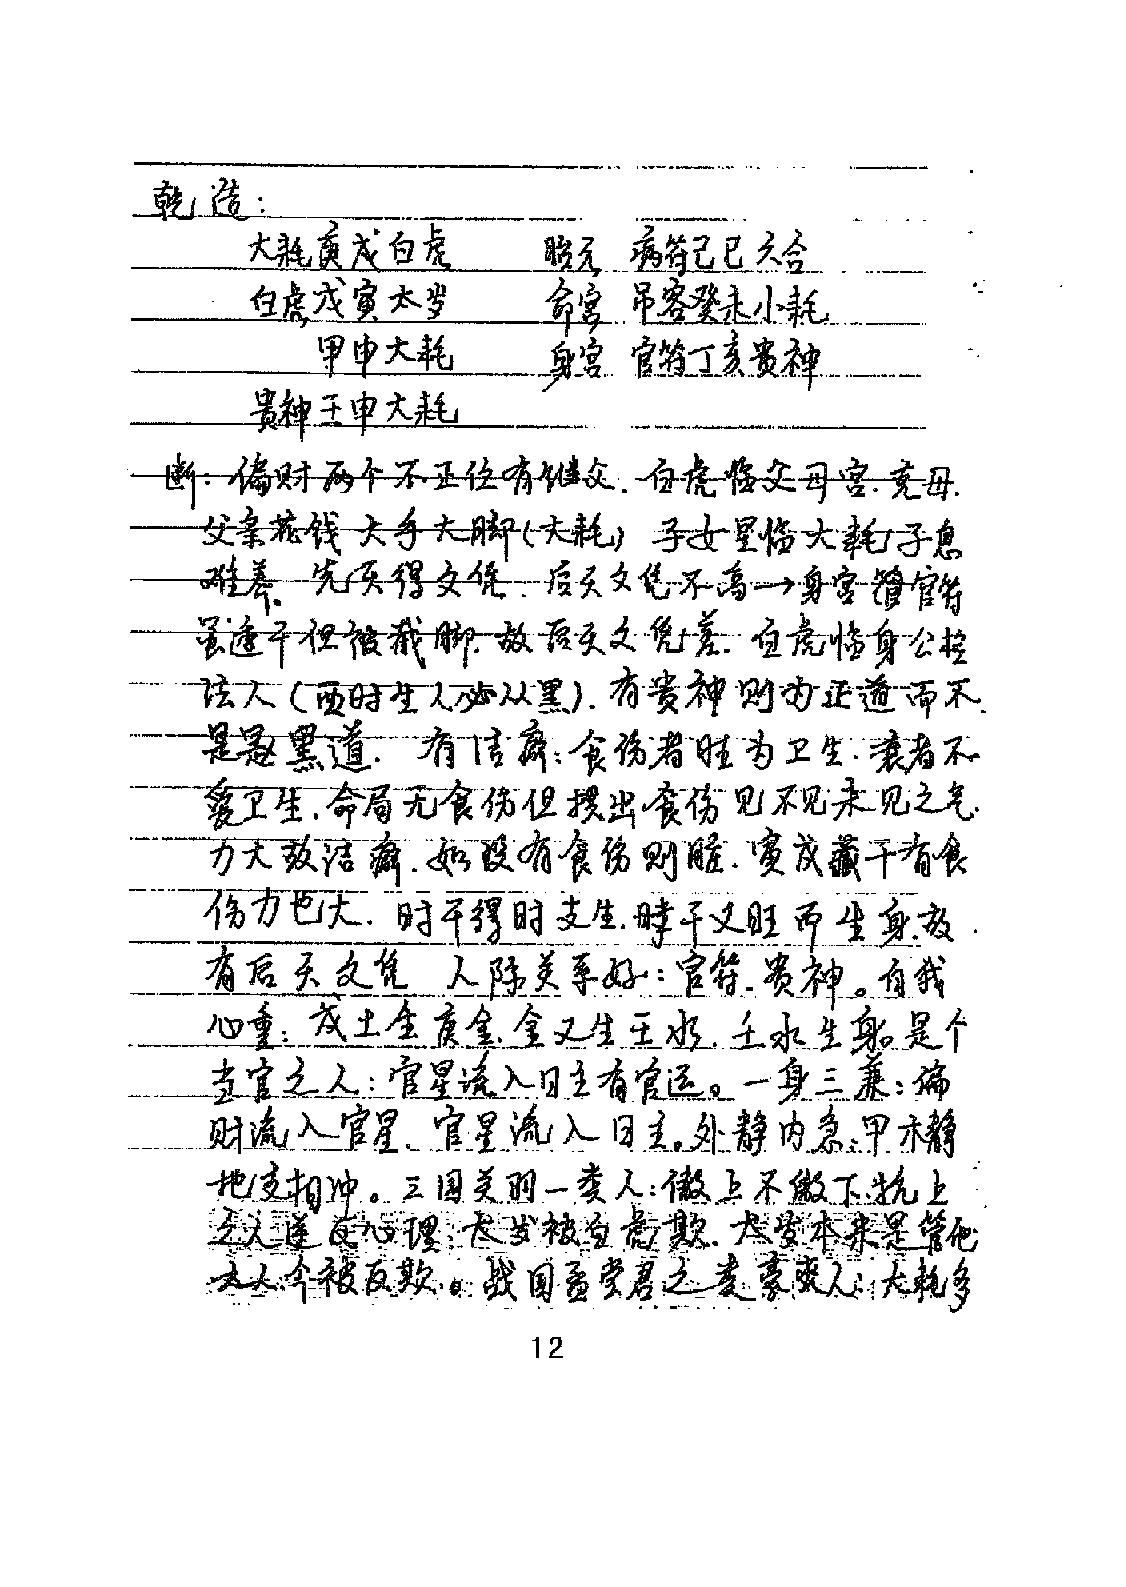 乾造：
大耗庚戌白虎 胎元 病符己巳六合
白虎戊寅太岁 命宫 吊客癸未小耗
甲申大耗 身宫 官符丁亥贵神
贵神壬申大耗
断：偏财两个不正位有继父．白虎临父母宫．克母．
父亲花钱大手大脚（大耗）子女星临大耗子息
难养．先天得文凭．后天文凭不高→身宫官符
虽透干但被截脚．故后天文凭差．白虎临身公检
法人（酉时生人必从黑）．有贵神则为正道而不
是黑道．有洁癖：食伤者旺为卫生．衰者不
爱卫生．命局无食伤但拱出食伤见不见未见之气
力大故洁癖．如没有食伤则脏．寅戌藏干有食
伤力也大．时干得时支生．时干又旺而生身．故
有后天文凭 人际关系好：官符．贵神。自我
心重：戊土金庚金．金又生壬水．壬水生身。是个
当官之人：官星流入日主有官运。一身三兼：偏
财流入官星．官星流入日主。外静内急：甲木静
地支相冲。三国关羽一类人：傲上不傲下．抗上
逆反心理：太岁被白虎欺．太岁本来是管他
人今被反欺。战国孟尝君之类豪爽人：大耗多
12